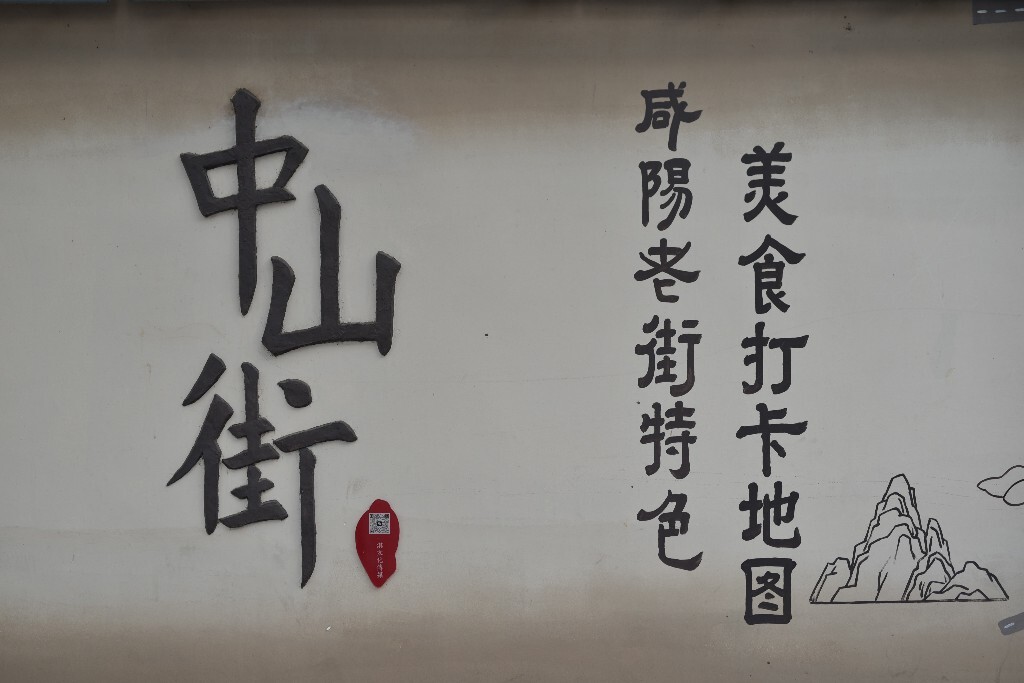 中山街
咸陽老街特色
美食打卡地图